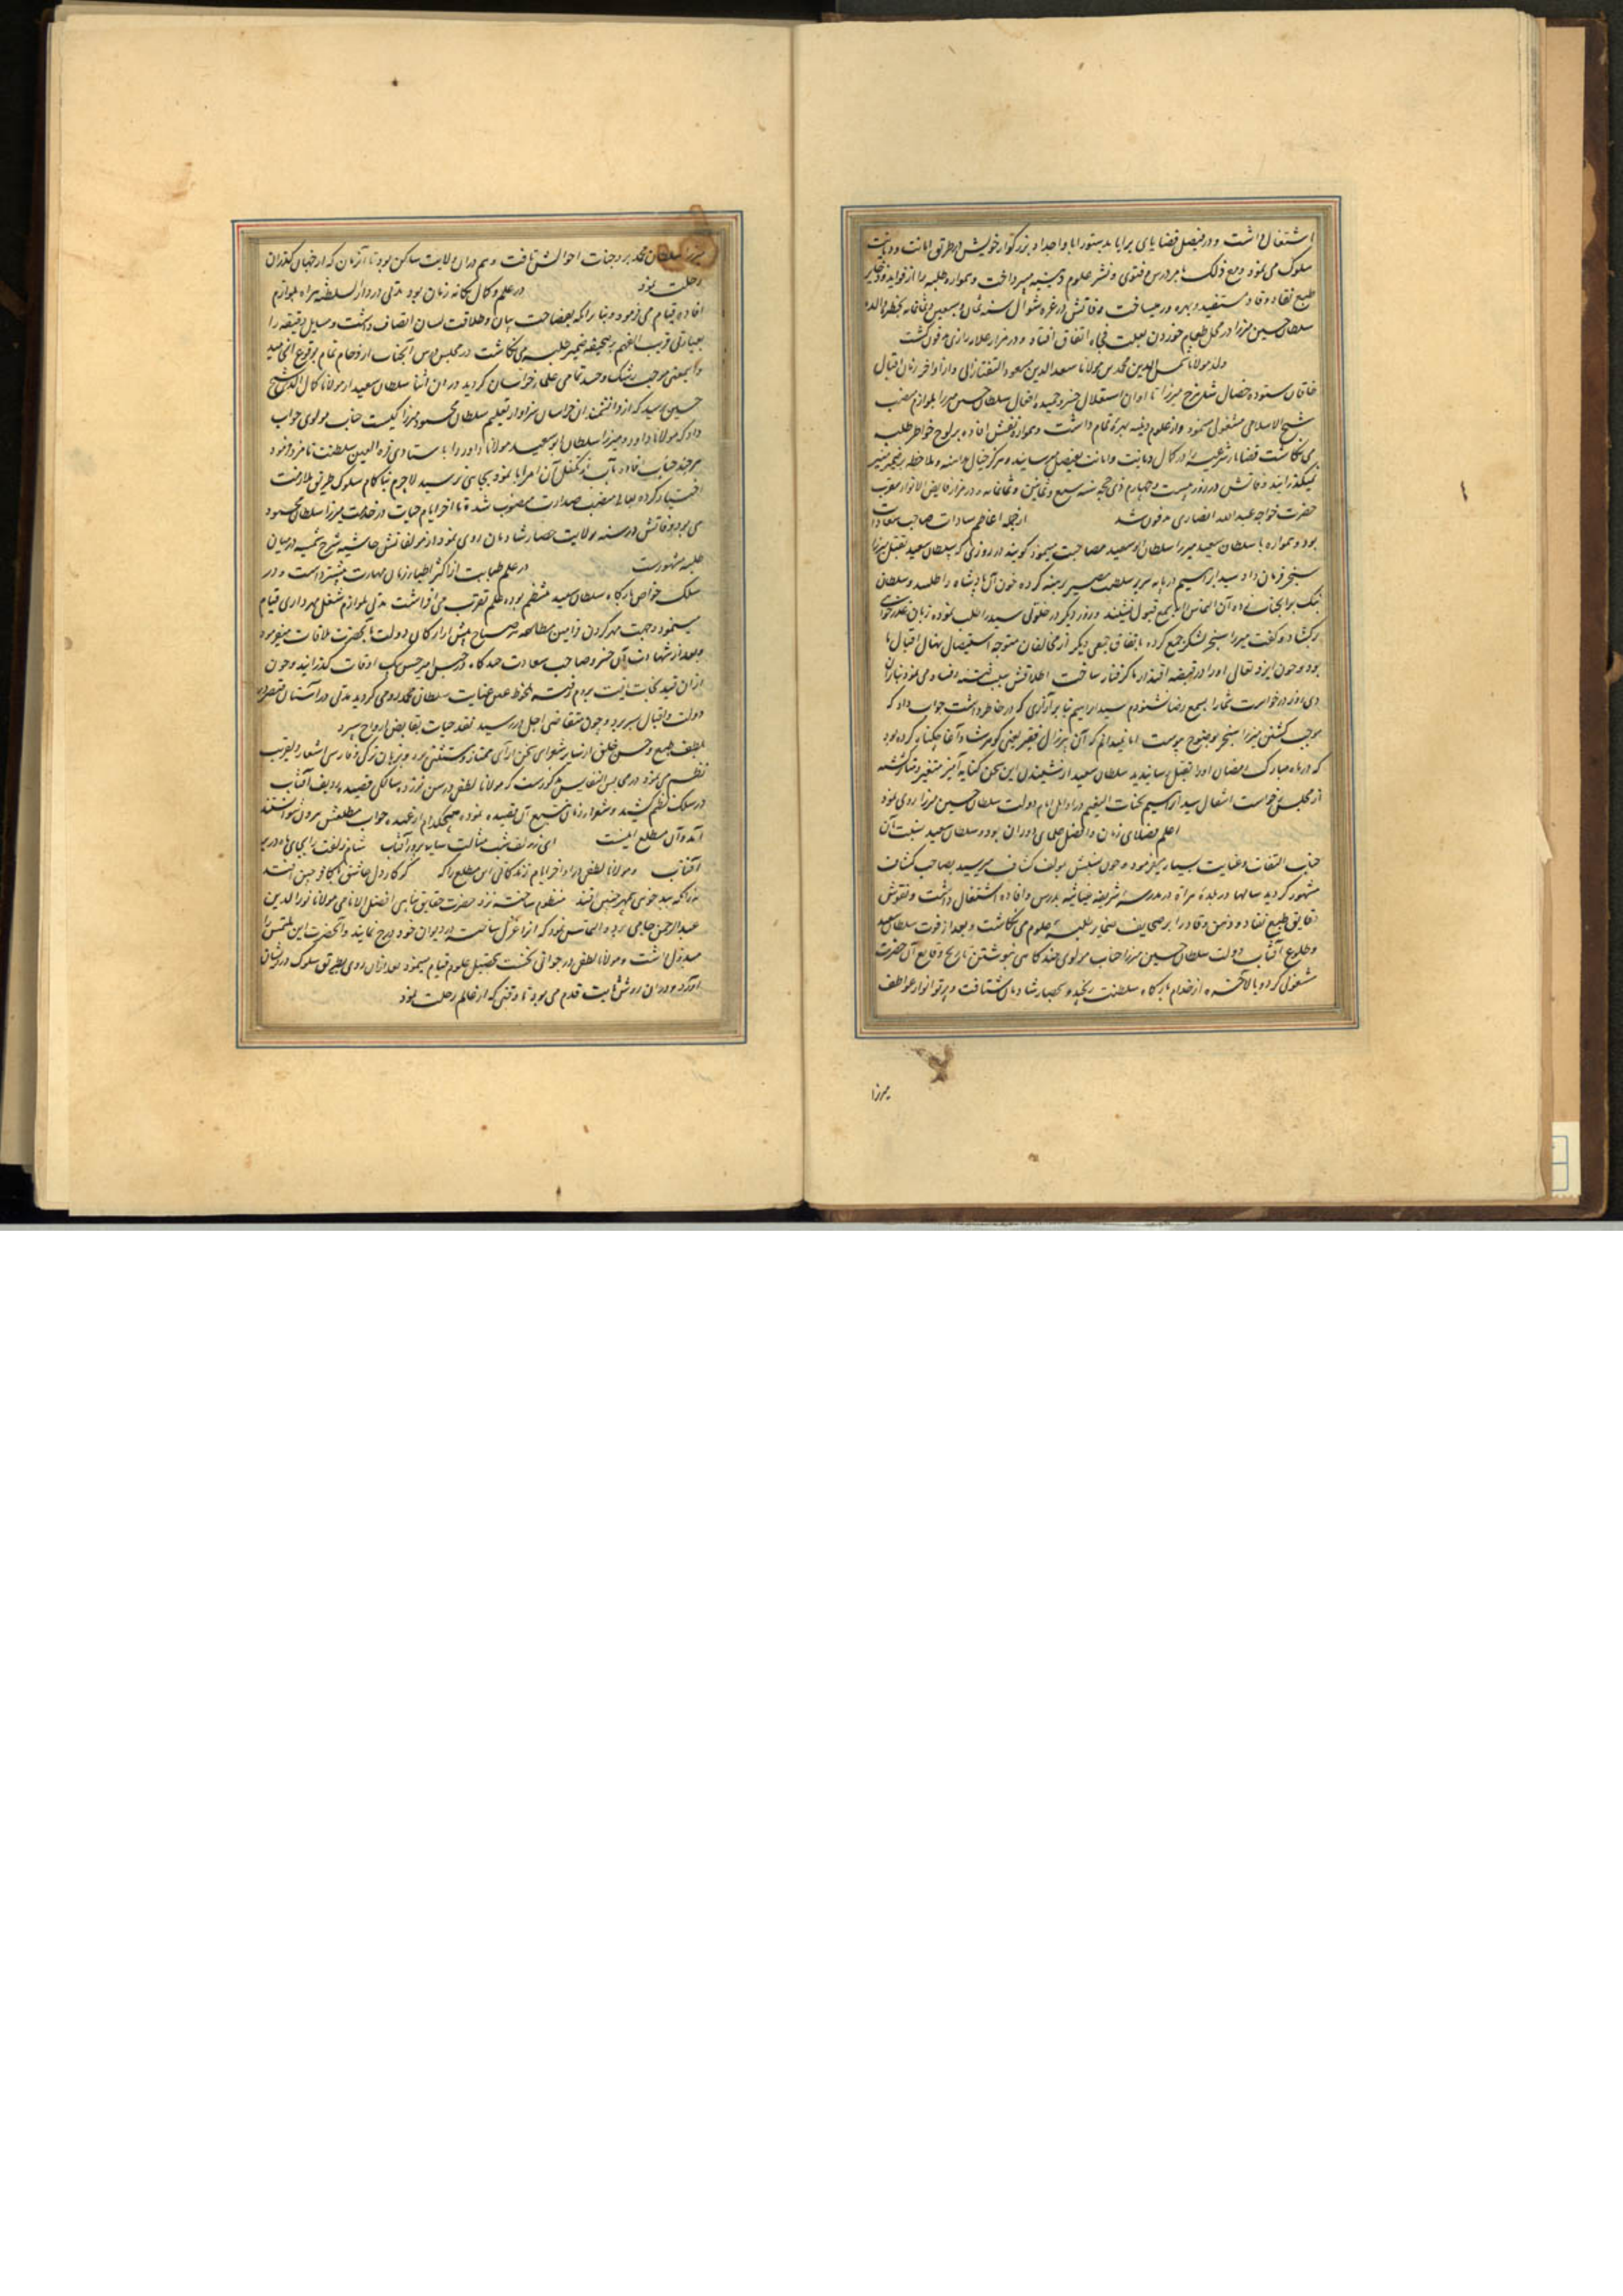 اشتغال داشت و در فیصل قضایای برایا بدستور ابا و اجداد بزرگوار خویش بر طریق امانت و دیانت
سلوک می نمود و مع ذلک بامر درس و فتوی و نشر علوم دینیه می پرداخت و همواره طلبه را از فواید
طبع نقاد و وقاد مستفید و بهره ور میساخت وفاتش در غره شوال سنه ثمان و سبعین و ثمانمایه
سلطان حسین میرزا در محل طعام خوردن بعلت فجاه اتفاق افتاد و در مزار مدفون گشت
ولد مولانا شمس الدین محمد بن مولانا سعد الدین مسعود التفتازانی و از اواخر زمان اقبال
خاقان ستوده خصال شاهرخ میرزا تا اوان استقلال خسرو حمیده افعال سلطان حسین میرزا بلوازم منصب
شیخ الاسلامی مشغولی مینمود و از علوم دینیه بهره تمام داشت و همواره نقش افاده بر لوح خواطر طلبه
می نگاشت قضایا شرعیه را در کمال دیانت و امانت بفیصل میرسانید و هرگز خیال مداهنه و ملاحظه بر ضمیر منیر
نمیگذرانید وفاتش در روز بیست و چهارم ذی حجه سنه سبع و ثمانین و ثمانمایه و در مزار فایض الانوار مقرب
حضرت خواجه عبدالله انصاری مدفون شد از جمله اعاظم سادات صاحب سعادات
بود و همواره با سلطان سعید میرزا سلطان ابو سعید مصاحبت مینمود گویند در روزی که سلطان سعید بقتل میرزا
سنجر فرمان داد سید ابراهیم در پایه سریر سلطنت مصیر سر برهنه کرده خون آن پادشاه را طلبید و سلطان
نیک برای آن التماس را بسمع قبول نشنید و روز دیگر در خلوتی سید را طلب نموده زبان عذرخواهی
برگشاد و گفت میرزا سنجر لشکر جمع کرده باتفاق جمعی دیگر از مخالفان متوجه استیصال نهال اقبال ما
بود و چون ایزد تعالی او را در قبضه اقتدار ما گرفتار ساخت اطلاقش سبب فتنه و فساد می نمود بنابران
دی روز درخواست شما را بسمع رضا نشنودم سید ابراهیم بنا بر آزاری که در خاطر داشت جواب داد که
موجب کشتن میرزا سنجر بوضوح پیوست اما نمیدانم که آن پیرزال فقیر یعنی گوهرشاد آغا چه گناه کرده بود
که در ماه مبارک رمضان او را بقتل رسانیدید سلطان سعید از شنیدن این سخن کنایه آمیز متغیر و متأثر گشته
از مجلس برخاست انتقال سید ابراهیم بجنات النعیم در اوایل ایام دولت سلطان حسین میرزا روی نمود
اعلم فضلای زمان و افضل علمای دوران بود و سلطان سعید نسبت بآن
جناب التفات و عنایت بسیار میفرمود و چون نسبش بمولف کشاف میرسید بصاحب کشاف
مشهور گردید سالها در بلده هراة در مدرسه شریفه غیاثیه بدرس و افاده اشتغال داشت و نقوش
دقایق طبع نقاد و ذهن وقاد را بر صحایف ضمایر طلبه علوم می نگاشت و بعد از فوت سلطان سعید
و طلوع آفتاب دولت سلطان حسین میرزا جناب مولوی چند گاهی بنوشتن تاریخ وقایع آن حضرت
مشغولی کرد و بالآخره از خدام بارگاه سلطنت رنجید و بحصار شادمان شتافت و پرتو انوار عواطف
میرزا
میرزا سلطان محمد بر وجنات احوالش تافت و هم در آن ولایت ساکن بود تا آن زمان که از جهان گذران
رحلت نمود در علم و کمال یگانه زمان بود مدتی در دار السلطنه هراه بلوازم
افاده قیام می فرمود و بنا بر آنکه بفصاحت بیان و طلاقت لسان اتصاف داشت و مسایل دقیقه را
بعبارتی قریب الفهم بر صحیفه ضمیر طلبه می نگاشت در مجلس درس آنجناب ازدحام تمام بوقوع انجامید
و این معنی موجب رشک و حسد تمامی علماء خراسان گردید در آن اثنا سلطان سعید از مولانا کمال الدین شیخ
حسین پرسید که از دانشمندان خراسان سزاوار تعلیم سلطان محمود میرزا کیست جناب مولوی جواب
داد که مولانا داود و میرزا سلطان ابو سعید مولانا داود را باستادی قرة العین سلطنت نامزد فرمود
هر چند جناب افادت مآب از تکفل آن امر ابا نمود بجایی نرسید لاجرم بناکام سلوک طریق ملازمت
اختیار کرده بعالی منصب صدارت منصوب شد و تا آخر ایام حیات در خدمت میرزا سلطان محمود
می بود و فاتش در سنه بولایت حصار شادمان روی نمود و از مولفاتش حاشیه شرح شمسیه در میان
طلبه مشهورست در علم طبابت از اکثر اطباء زمان مهارت بیشتر داشت و در
سلک خواص بارگاه سلطان سعید منتظم بوده علم تقرب می افراشت مدتی بلوازم شغل مهرداری قیام
مینمود و جهت مهر کردن فرامین مطاعه هر صباح پیش از ارکان دولت با حضرت ملاقات میفرمود
و بعد از شهادت آن خسرو صاحب سعادت چند گاه در حبس امیر حسن بیک اوقات گذرانید و چون
از آن قید نجات یافت بروم رفته ملحوظ عین عنایت سلطان محمد رومی گردید مدتی در آستان
دولت و اقبال بسر برد و چون متقاضی اجل در رسید نقد حیات بقابض ارواح سپرد
بلطف طبع و حسن خلق از سایر شعرای سخن آرای ممتاز و مستثنی بود و بزبان ترکی و فارسی اشعار
نظم می نمود در مجالس النفایس مذکورست که مولانا لطفی در سن نود و نه سالگی قصیده بردیف آفتاب
در سلک نظم کشید و شعراء زمان تتبع آن قصیده نموده هیچکدام از عهده جواب مطلعش بیرون نتوانستند
آمد و آن مطلع اینست ای ز زلف شب مثالت سایه پرور آفتاب شام زلفت را بجای ماه در بر
آفتاب و مولانا لطفی در اواخر ایام زندگانی این مطلع را که گر کار دل عاشق با کافر چین افتد
به زانکه به بدخوئی بی مهر چنین افتد منظوم ساخته نزد حضرت حقایق پناهی افضل الانامی مولانا نور الدین
عبدالرحمن جامی برد و التماس نمود که آنرا غزل ساخته در دیوان خود درج نمایند و آنحضرت این ملتمس را
مبذول داشت و مولانا لطفی در جوانی نخست بتحصیل علوم قیام مینمود بعد از آن روی بطریق سلوک درویشان
آورد و در آن روش ثابت قدم می بود تا وقتی که از عالم رحلت نمود